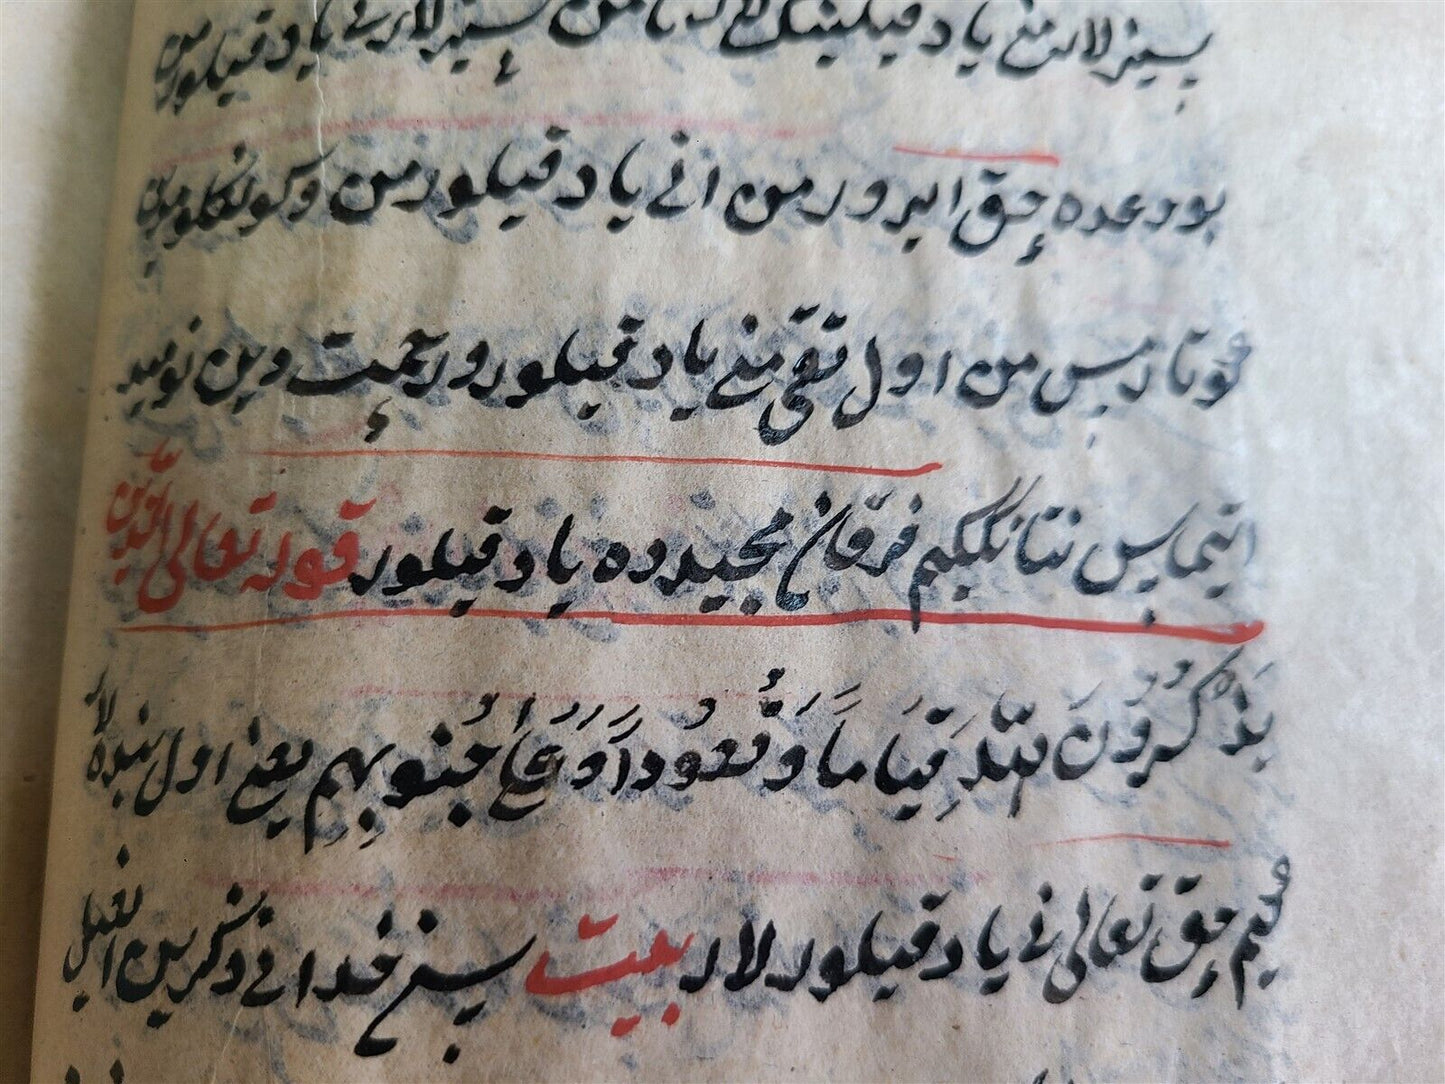 سیزلار منی یاد قیلینک لار تا من سیزلارنی یاد قیلورمن
بو وعده حق ایرور من انی یاد قیلورمن وکونکلومدین
من اول تقی منی یاد قیلور و رحمت دین نومید
ایتماس فرقان مجیدده یاد قیلور قوله تعالی الذین
یَذْکُرُوْنَ لِلّٰهِ قِیَامًا وَقُعُوْدًا وَعَلٰی جُنُوبِهِم یعنی اول بنده لار
حق تعالی نی یاد قیلورلار بیت سینی خدانی ذکریدین